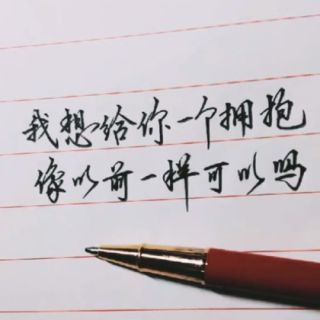 我想给你一个拥抱
像以前一样可以吗